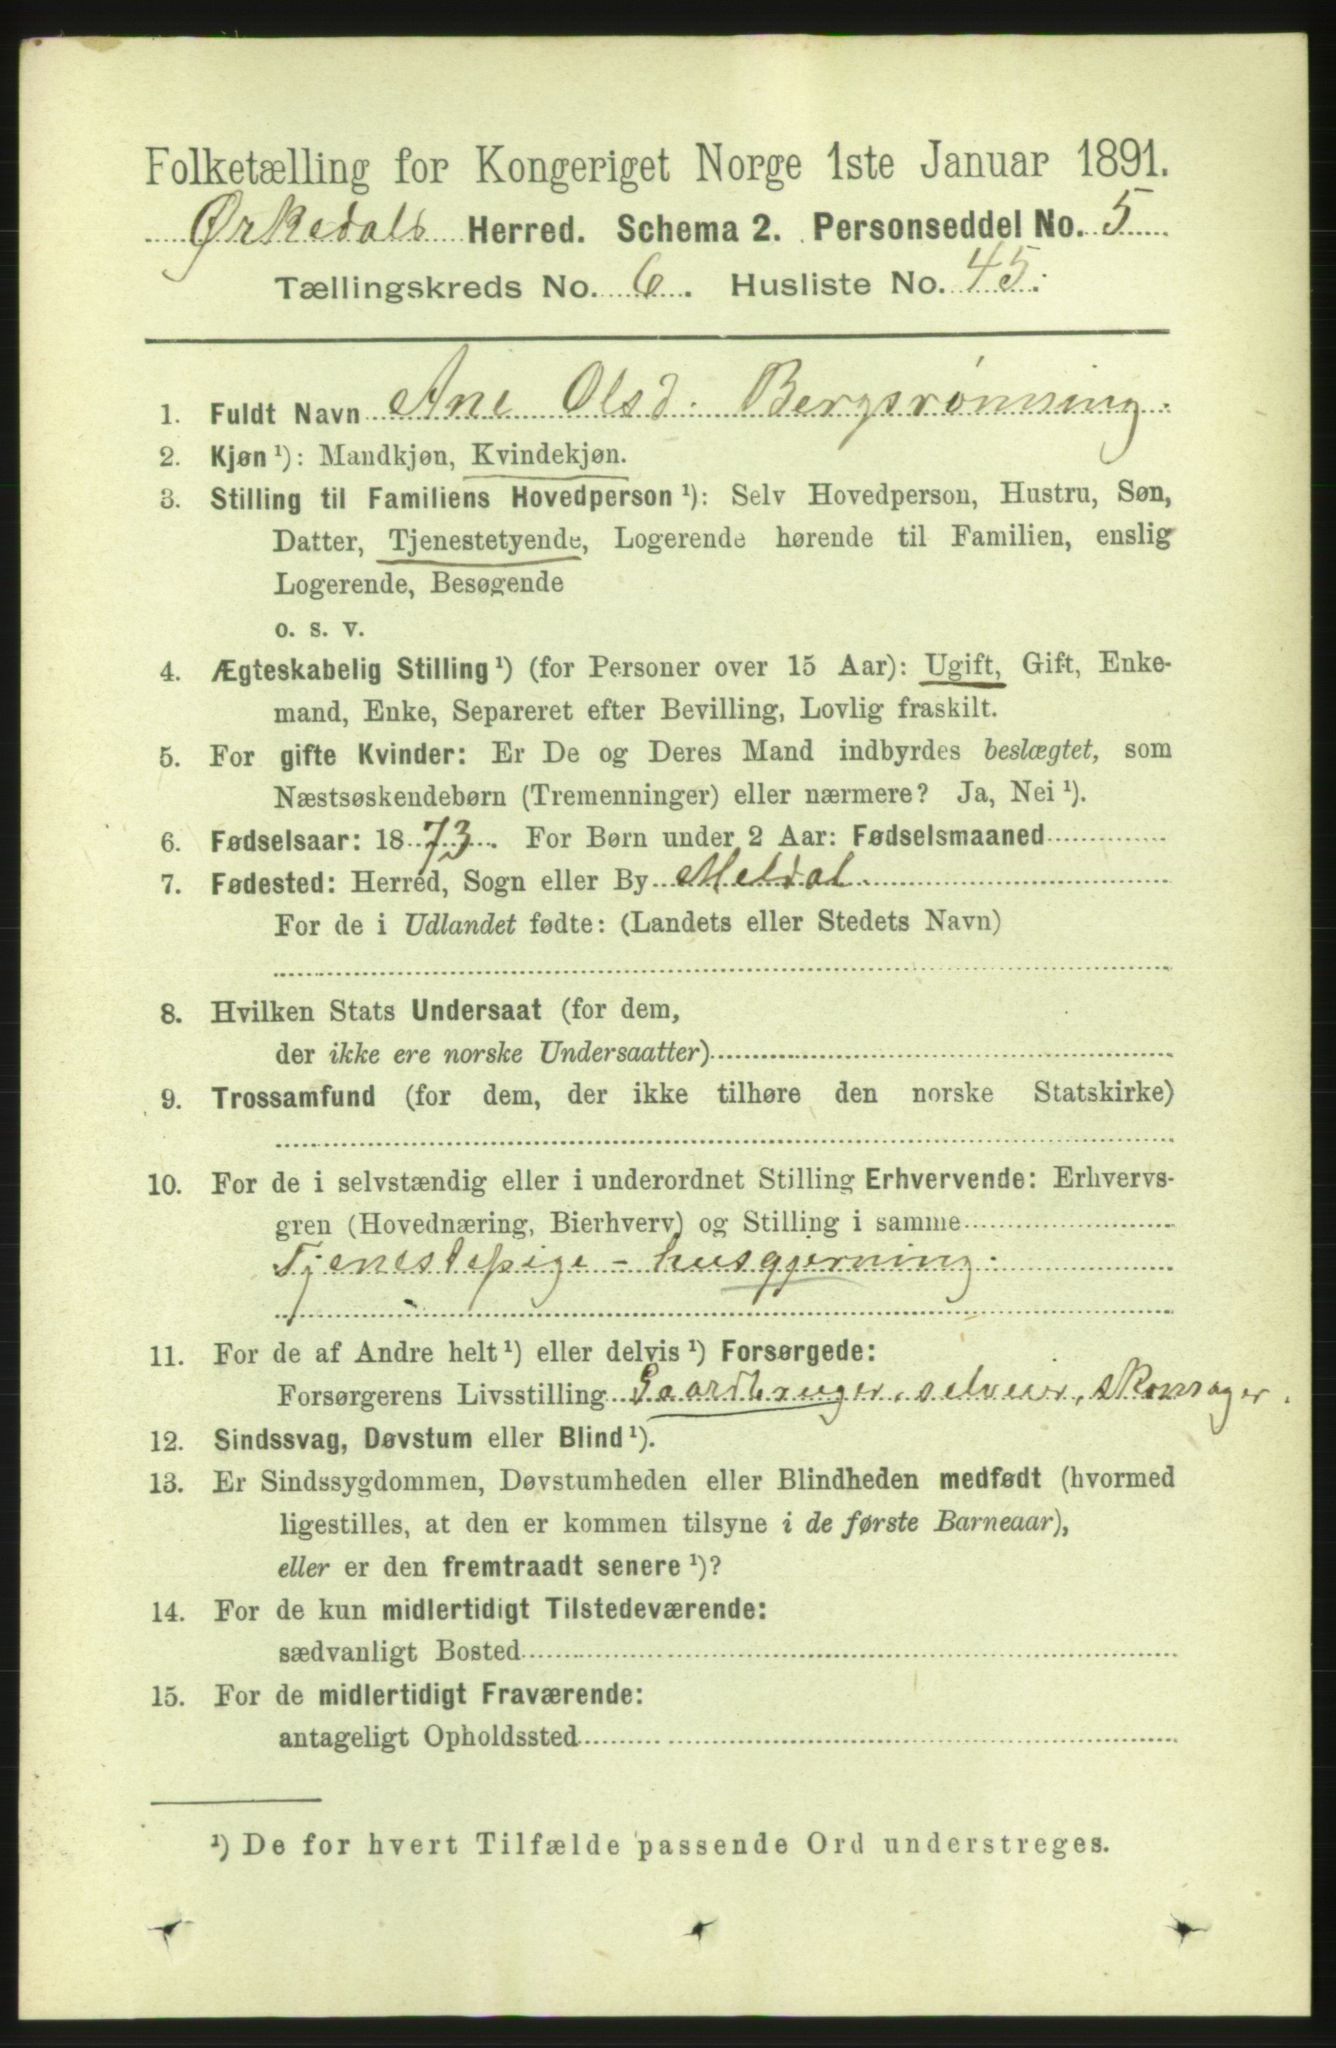 Folketælling for Kongeriget Norge 1ste Januar 1891.
Ørkedals Herred. Schema 2. Personseddel No. 5
Tællingskreds No. 6. Husliste No. 45.
1. Fuldt Navn Ane Olsd. Bergsrønning.
2. Kjøn ¹): Mandkjøn, Kvindekjøn.
3. Stilling til Familiens Hovedperson ¹): Selv Hovedperson, Hustru, Søn,
Datter, Tjenestetyende, Logerende hørende til Familien, enslig
Logerende, Besøgende
o. s. v.
4. Ægteskabelig Stilling ¹) (for Personer over 15 Aar): Ugift, Gift, Enke-
mand, Enke, Separeret efter Bevilling, Lovlig fraskilt.
5. For gifte Kvinder: Er De og Deres Mand indbyrdes beslægtet, som
Næstsøskendebørn (Tremenninger) eller nærmere? Ja, Nei ¹).
6. Fødselsaar: 1873. For Børn under 2 Aar: Fødselsmaaned
7. Fødested: Herred, Sogn eller By Meldal.
For de i Udlandet fødte: (Landets eller Stedets Navn)
8. Hvilken Stats Undersaat (for dem,
der ikke ere norske Undersaatter)
9. Trossamfund (for dem, der ikke tilhøre den norske Statskirke)
10. For de i selvstændig eller i underordnet Stilling Erhvervende: Erhvervs-
gren (Hovednæring, Bierhverv) og Stilling i samme
Tjenestepige - husgjerning.
11. For de af Andre helt ¹) eller delvis ¹) Forsørgede:
Forsørgerens Livsstilling Gaardbruger, selveier,
12. Sindssvag, Døvstum eller Blind ¹).
13. Er Sindssygdommen, Døvstumheden eller Blindheden medfødt (hvormed
ligestilles, at den er kommen tilsyne i de første Barneaar),
eller er den fremtraadt senere ¹)?
14. For de kun midlertidigt Tilstedeværende:
sædvanligt Bosted
15. For de midlertidigt Fraværende:
antageligt Opholdssted
¹) De for hvert Tilfælde passende Ord understreges.